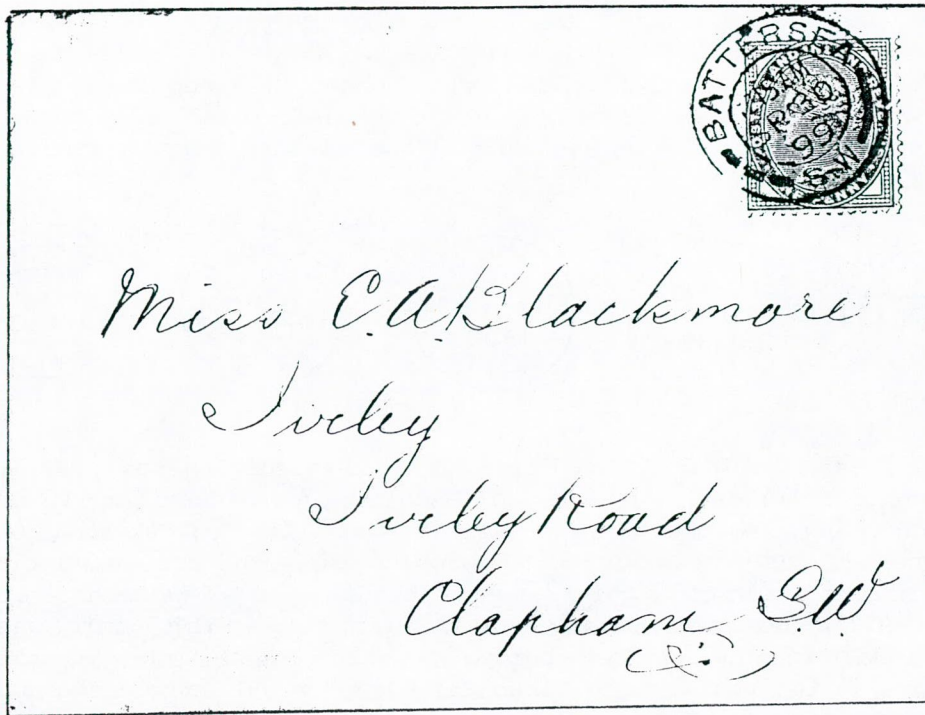 BATTERSEA
S.W
99
Miss E. A. Blackmore
Iveley
Iveley Road
Clapham S.W.